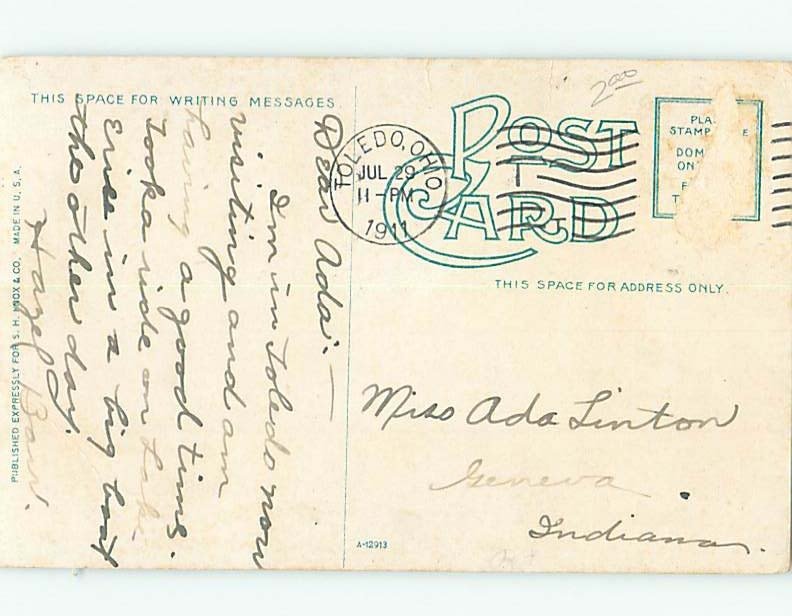 THIS SPACE FOR WRITING MESSAGES.
Dear Ada:—
I'm in Toledo now
visiting and am
having a good time.
Took a ride on Lake
Erie in a big boat
the other day.
Hazel
PUBLISHED EXPRESSLY FOR S. H. KNOX & CO. MADE IN U. S. A.
2.00
POST CARD
TOLEDO, OHIO
JUL 29
11-PM
1911
PLA
STAMP E
DOM
ON
F
T
THIS SPACE FOR ADDRESS ONLY.
Miss Ada Linton
Geneva
Indiana.
A-12913